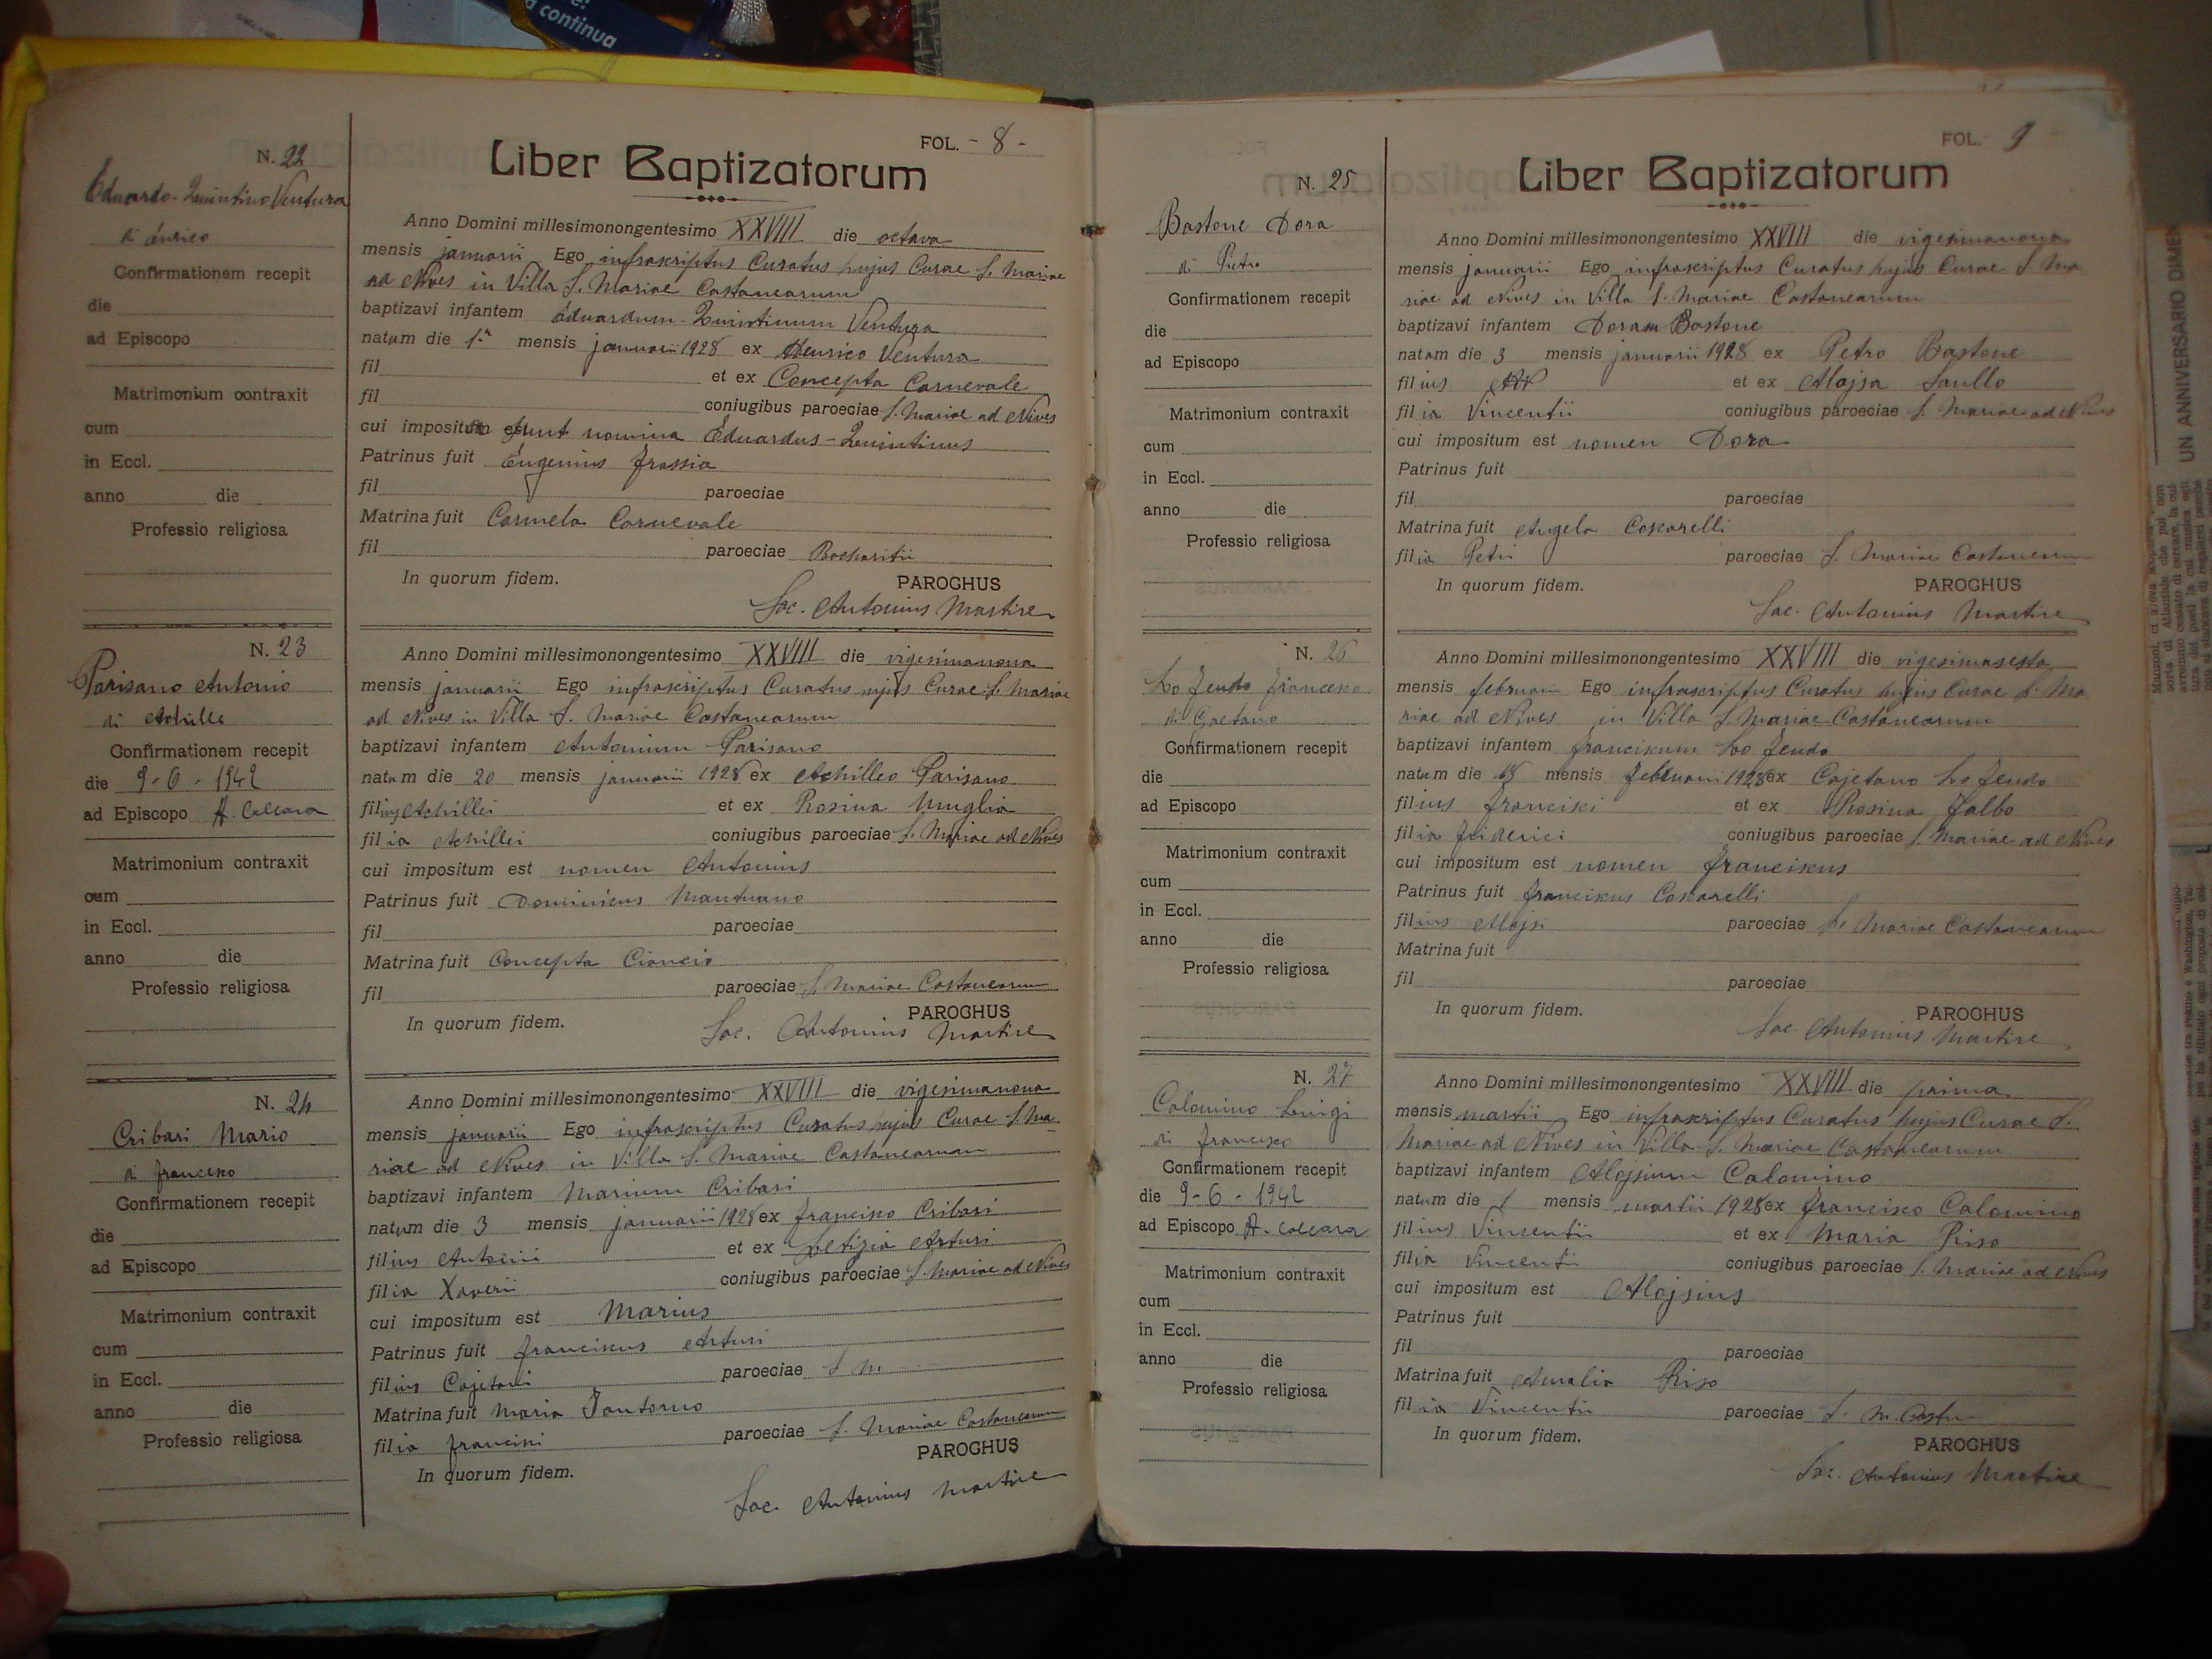 a continua
N. 22
Eduardo-Quintino Ventura
di Enrico
Confirmationem recepit
die
ad Episcopo
Matrimonium contraxit
cum
in Eccl.
anno die
Professio religiosa
FOL. - 8 -
Liber Baptizatorum
Anno Domini millesimonongentesimo XXVIII die octava
mensis januarii Ego infrascriptus Curatus hujus Curae S. Mariae
ad Nives in Villa S. Mariae Castanearum
baptizavi infantem Eduardum-Quintinum Ventura
natum die 1a mensis januarii 1928 ex Henrico Ventura
fil et ex Concepta Carnevale
fil coniugibus paroeciae S. Mariae ad Nives
cui imposita sunt nomina Eduardus-Quintinus
Patrinus fuit Eugenius Frassia
fil paroeciae
Matrina fuit Carmela Carnevale
fil paroeciae
In quorum fidem. PAROCHUS
Sac. Antonius Martire
N. 23
Parisano Antonio
di Achille
Confirmationem recepit
die 9-6-1942
ad Episcopo A. Calcara
Matrimonium contraxit
cum
in Eccl.
anno die
Professio religiosa
Anno Domini millesimonongentesimo XXVIII die vigesimanona
mensis januarii Ego infrascriptus Curatus hujus Curae S. Mariae
ad Nives in Villa S. Mariae Castanearum
baptizavi infantem Antonium Parisano
natum die 20 mensis januarii 1928 ex Achilleo Parisano
filius Achillei et ex Rosina Muglia
filia Achillei coniugibus paroeciae S. Mariae ad Nives
cui impositum est nomen Antonius
Patrinus fuit Dominicus Mantuano
fil paroeciae
Matrina fuit Concepta Ciancio
fil paroeciae S. Mariae Castanearum
PAROCHUS
In quorum fidem. Sac. Antonius Martire
N. 24
Cribari Mario
di Francesco
Confirmationem recepit
die
ad Episcopo
Matrimonium contraxit
cum
in Eccl.
anno die
Professio religiosa
Anno Domini millesimonongentesimo XXVIII die vigesimanona
mensis januarii Ego infrascriptus Curatus hujus Curae S. Ma
riae ad Nives in Villa S. Mariae Castanearum
baptizavi infantem Marium Cribari
natum die 3 mensis januarii 1928 ex Francisco Cribari
filius Antonii et ex Letizia Arturi
filia Xaverii coniugibus paroeciae S. Mariae ad Nives
cui impositum est Marius
Patrinus fuit Franciscus Arturi
filius Cajetani paroeciae S. M.
Matrina fuit Maria Santorno
filia Francisci paroeciae S. Mariae Castanearum
PAROCHUS
In quorum fidem.
Sac. Antonius Martire
N. 25
Bastone Dora
di Pietro
Confirmationem recepit
die
ad Episcopo
Matrimonium contraxit
cum
in Eccl.
anno die
Professio religiosa
FOL. 9
Liber Baptizatorum
Anno Domini millesimonongentesimo XXVIII die vigesimanona
mensis januarii Ego infrascriptus Curatus hujus Curae S. Ma
riae ad Nives in Villa S. Mariae Castanearum
baptizavi infantem Doram Bastone
natam die 3 mensis januarii 1928 ex Petro Bastone
filius et ex Alojsa Saullo
filia Vincentii coniugibus paroeciae S. Mariae ad Nives
cui impositum est nomen Dora
Patrinus fuit
fil paroeciae
Matrina fuit Angela Coscarelli
filia Petri paroeciae S. Mariae Castanearum
In quorum fidem. PAROCHUS
Sac. Antonius Martire
N. 26
Lo Feudo Francesco
di Gaetano
Confirmationem recepit
die
ad Episcopo
Matrimonium contraxit
cum
in Eccl.
anno die
Professio religiosa
Anno Domini millesimonongentesimo XXVIII die vigesimasesta
mensis februarii Ego infrascriptus Curatus hujus Curae S. Ma
riae ad Nives in Villa S. Mariae Castanearum
baptizavi infantem Franciscum Lo Feudo
natum die 18 mensis Februarii 1928 ex Cajetano Lo Feudo
filius Francisci et ex Rosina Falbo
filia Friderici coniugibus paroeciae S. Mariae ad Nives
cui impositum est nomen Franciscus
Patrinus fuit Franciscus Coscarelli
filius Alojsi paroeciae S. Mariae Castanearum
Matrina fuit
fil paroeciae
In quorum fidem. PAROCHUS
Sac. Antonius Martire
N. 27
Calomino Luigi
di Francesco
Confirmationem recepit
die 9-6-1942
ad Episcopo A. Calcara
Matrimonium contraxit
cum
in Eccl.
anno die
Professio religiosa
Anno Domini millesimonongentesimo XXVIII die prima
mensis martii Ego infrascriptus Curatus hujus Curae S.
Mariae ad Nives in Villa S. Mariae Castanearum
baptizavi infantem Alojsium Calomino
natum die 1 mensis martii 1928 ex Francisco Calomino
filius Vincentii et ex Maria Riso
filia Vincentii coniugibus paroeciae S. Mariae ad Nives
cui impositum est Alojsius
Patrinus fuit
fil paroeciae
Matrina fuit Amalia Riso
filia Vincentii paroeciae S. M. Castan
In quorum fidem. PAROCHUS
Sac. Antonius Martire
UN ANNIVERSARIO